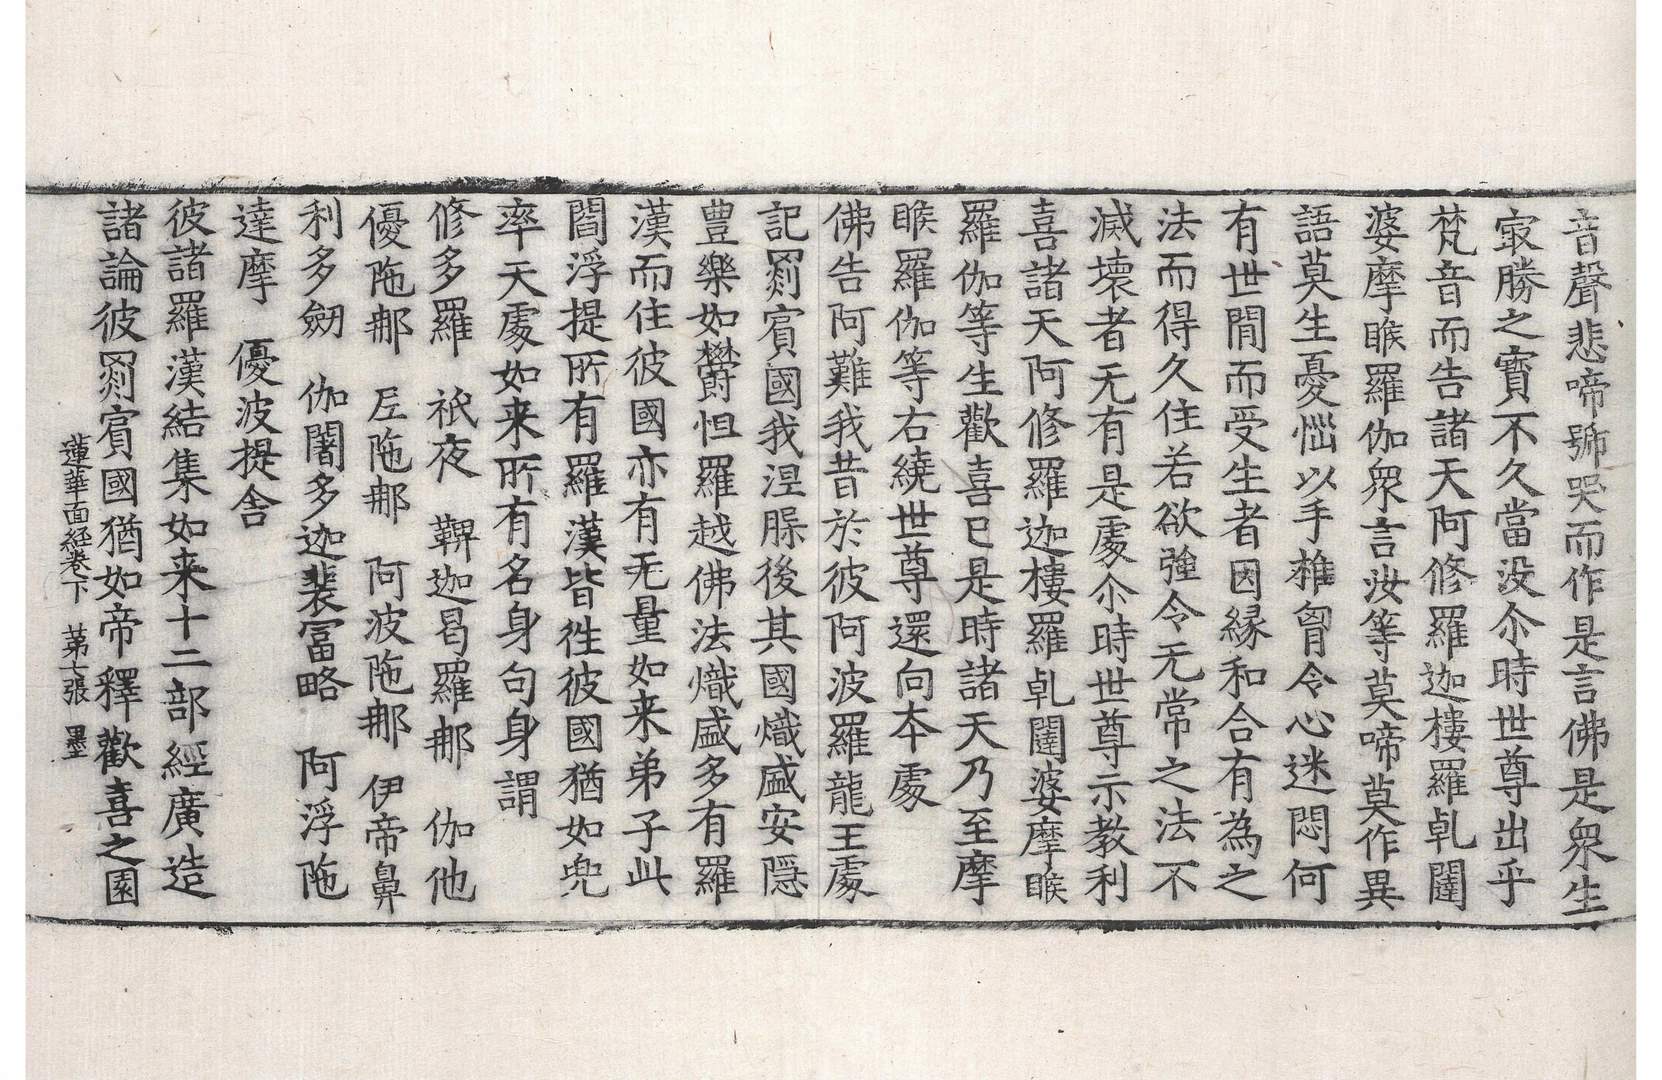 音聲悲啼號哭而作是言佛是衆生
㝡勝之寶不久當没尒時世尊出乎
梵音而告諸天阿修羅迦樓羅乹闥
婆摩睺羅伽衆言汝等莫啼莫作異
語莫生憂惱以手椎胷令心迷悶何
有世間而受生者因緣和合有為之
法而得久住若欲強令无常之法不
滅壞者无有是處尒時世尊示教利
喜諸天阿修羅迦樓羅乹闥婆摩睺
羅伽等生歡喜已是時諸天乃至摩
睺羅伽等右繞世尊還向本處
佛告阿難我昔於彼阿波羅龍王處
記罽賓國我涅槃後其國熾盛安隱
豊樂如欝怛羅越佛法熾盛多有羅
漢而住彼國亦有无量如来弟子此
閻浮提所有羅漢皆徃彼國猶如兜
率天處如来所有名身句身謂
修多羅　祇夜　鞞迦曷羅那　伽他
優陁那　尼陁那　阿波陁那　伊帝鼻
利多劒　伽闍多迦裴富略　阿浮陁
達摩　優波提舍
彼諸羅漢結集如来十二部經廣造
諸論彼罽賓國猶如帝釋歡喜之園
蓮華面経卷下　第七張　墨